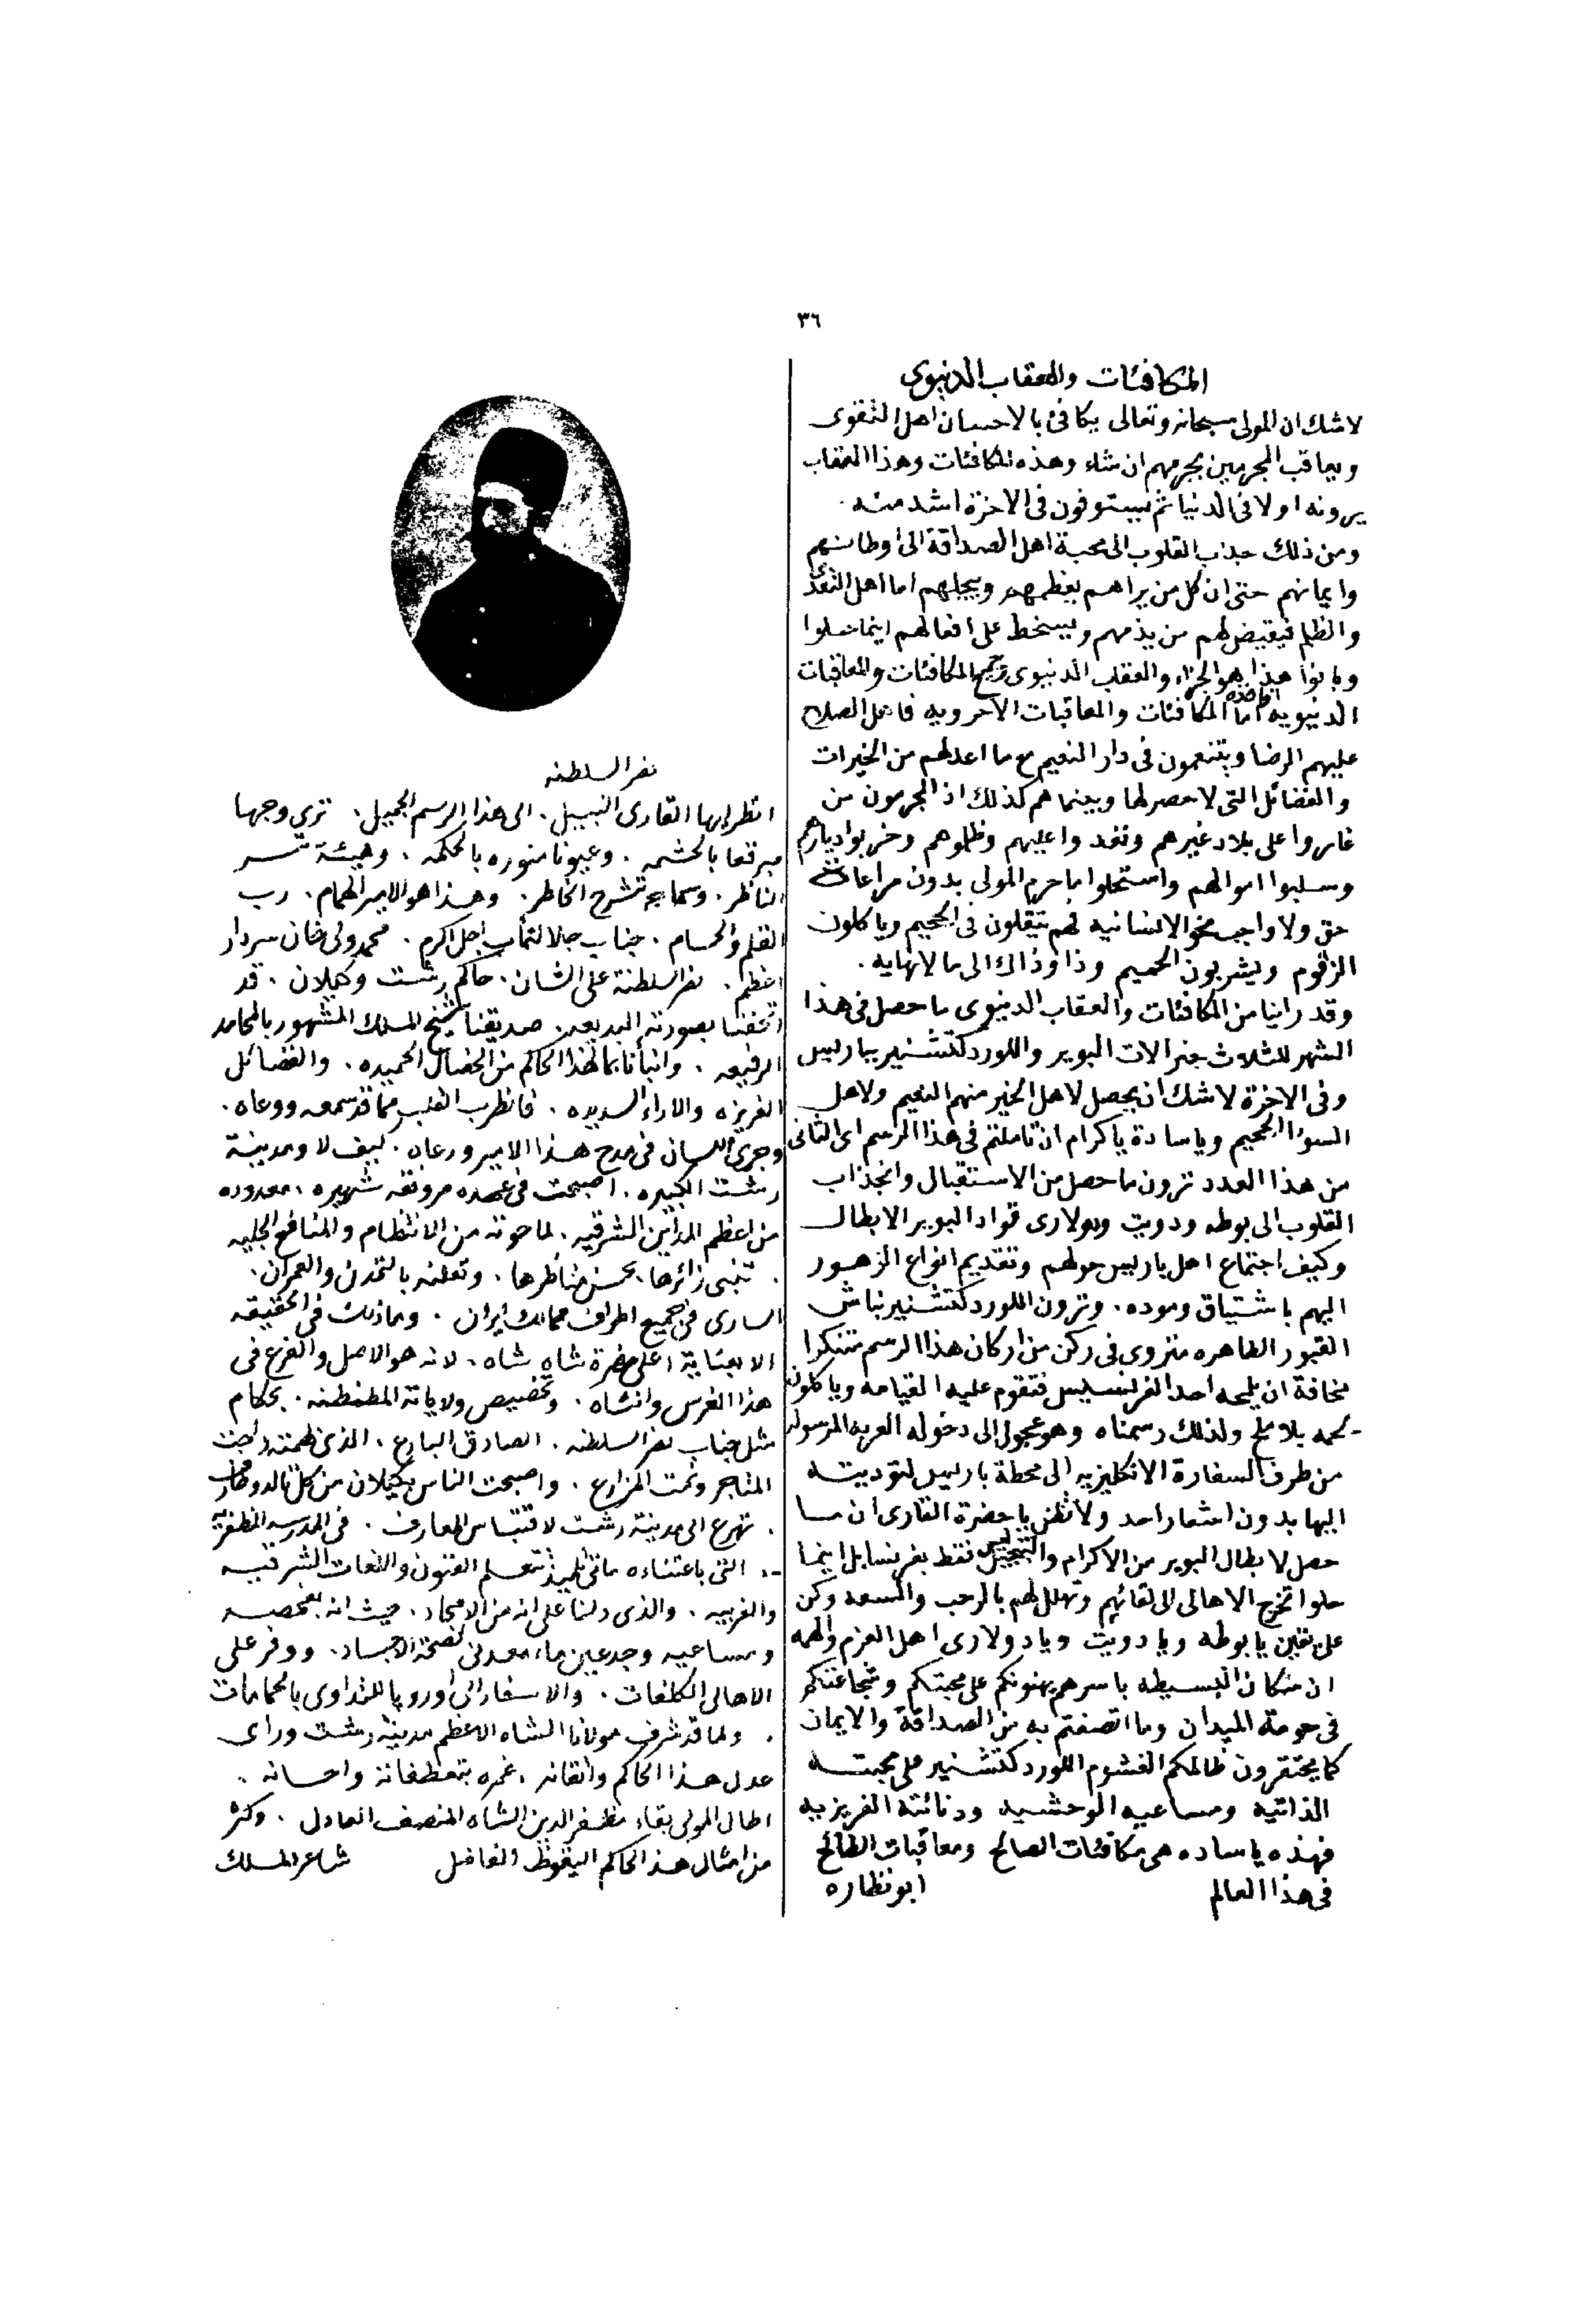 ٣٦
المكافئات والعقاب الدنيوى
لا شك ان المولى سبحانه وتعالى يكافئ بالاحسان اهل التقوى
ويعاقب المجرمين بجرمهم ان شاء وهذه المكافئات وهذا العقاب
يرونه اولا فى الدنيا ثم يستوفون فى الاخرة اشد منه .
ومن ذلك جذب القلوب الى محبة اهل الصداقة الى اوطانهم
وايمانهم حتى ان كل من يراهم يعظمهم ويبجلهم اما اهل التعدى
والظلم فيقيض لهم من يذمهم ويسخط على افعالهم اينما حلوا
وبانوا هذا هو الجزاء والعقاب الدنيوى المكافئات والمعاقبات
الدنيويه اما المكافئات والمعاقبات الاخرويه فاهل الصلاح
عليهم الرضا ويتنعمون فى دار النعيم مع ما اعد لهم من الخيرات
والفضائل التى لا حصر لها وبينما هم كذلك اذ المجرمون من
غاروا على بلاد غيرهم وتعدوا عليهم وظلموهم وخربوا ديارهم
وسلبوا اموالهم واستحلوا ما حرم المولى بدون مراعات
حق ولا واجب نحو الانسانيه لهم يتقلون فى الجحيم وياكلون
الزقوم ويشربون الحميم وذا وذاك الى ما لا نهايه .
وقد راينا من المكافئات والعقاب الدنيوى ما حصل فى هذا
الشهر للثلاث جنرالات البوير واللورد كتشنير بباريس
وفى الاخرة لا شك ان يحصل لاهل الخير منهم النعيم ولاهل
السوء الجحيم ويا سادة يا كرام ان تاملتم فى هذا الرسم اى الثانى
من هذا العدد ترون ما حصل من الاستقبال وانجذاب
القلوب الى بوطه ودويت ودولارى قواد البوير الابطال
وكيف اجتماع اهل باريس حولهم وتقديم انواع الزهور
اليهم باشتياق وموده . وترون اللورد كتشنير نباش
القبور الطاهره منزوى فى ركن من اركان هذا الرسم متنكرا
مخافة ان يلمحه احد الفرنسليس فتقوم عليه القيامه وياكلون
لحمه بلا ملح ولذلك رسمناه وهو عجول الى دخوله العربه المرسوله
من طرف السفارة الانكليزيه الى محطة باريس لتوديته
اليها بدون اشعار احد ولا تظن يا حضرة القارى ان ما
حصل لابطال البوير من الاكرام والتبجيل ليس فقط بفرنسا بل اينما
حلوا تخرج الاهالى الى لقائهم وتهلل لهم بالرحب والسعه وكن
على يقين يا بوطه ويا دويت ويا دولارى اهل العزم والهمه
ان سكان البسيطه باسرهم يهنونكم على محبتكم وشجاعتكم
فى حومة الميدان وما اتصفتم به من الصداقة والايمان
كما يحتقرون ظالمكم الغشوم اللورد كتشنير على محبته
الذاتيه ومساعيه الوحشيه ودنائته الغريزيه
فهذه يا ساده هى مكافئات الصالح ومعاقبات الطالح
فى هذا العالم ابو نظاره
نصر السلطنه
انظر ايها القارى النبيل . الى هذا الرسم الجميل . ترى وجها
مبرقعا بالحشمه . وعيونا منوره بالحكمه . وهيئة تسر
الناظر . وسماحة تشرح الخاطر . وهذا هو الامير الهمام . رب
القلم والحسام . جناب جلالتمآب اجل اكرم . محمد ولى خان سردار
اعظم . نصر السلطنة على الشان . حاكم رشت وكيلان . قد
اتحفنا بصورته البديعه . صديقنا شيخ الملك المشهور بالمحامد
الرفيعه . وانبأنا بما لهذا الحاكم من الخصال الحميده . والفضائل
الغزيره والاراء السديده . فانطرب القلب مما قد سمعه ووعاه .
وجرى اللسان فى مدح هذا الامير ورعاه . كيف لا ومدينة
رشت الكبيره . اصبحت فى عهده مرونقه شهيره . معدوده
من اعظم المداين الشرقيه . لما حوته من الانتظام والمنافع الجليه
. تنبى زائرها . بحسن مناظرها . وتعلنه بالتمدن والعمران .
السارى فى جميع اطراف ممالك ايران . وما ذلك فى الحقيقه
الا بعناية اعلى حضرة شاه شاه . لانه هو الاصل والفرع فى
هذا الغرس وانشاه . وتخصيص ولاياته المطنطنه . بحكام
مثل جناب نصر السلطنه . الصادق البارع . الذى بهمته رابحت
المتاجر ونمت المزارع . واصبحت الناس بكيلان من كل
. تهرع الى مدينة رشت لاقتباس المعارف . فى المدرسه المظفريه
. التى باعتناءه ماتى تلميذ تتعلم الفنون واللغات الشرقيه
والغربيه . والذى دلنا على انه من الامجاد . حيث انه بفحصه
ومساعيه وجد عين ماء معدنى لصحة الاجساد . ووفر على
الاهالى الكلفات . والاسفار الى اوروپا للتداوى بالحمامات
. ولما قد شرف مولانا الشاه الاعظم مدينة رشت وراى
عدل هذا الحاكم واتقانه . غمره بتعطفاته واحسانه .
اطال المولى بقاء مظفر الدين الشاه المنصف العادل . وكثر
من امثال هذا الحاكم اليقوظ الفاضل شاعر الملك